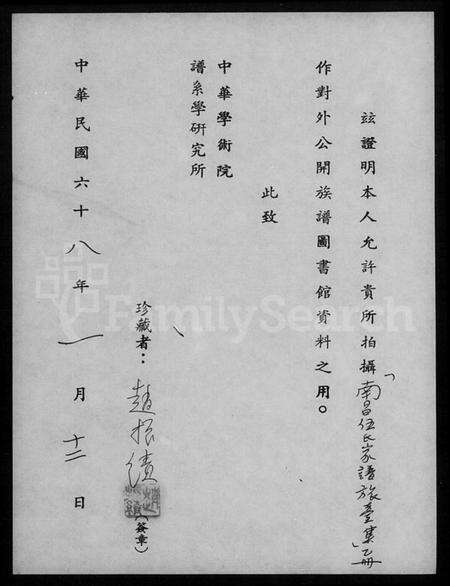 茲證明本人允許貴所拍攝「南昌伍氏家譜旅臺集」乙冊
作對外公開族譜圖書館資料之用。
此致
中華學術院
譜系學研究所
珍藏者：趙振績
(簽章)
中華民國六十八年一月十二日
FamilySearch